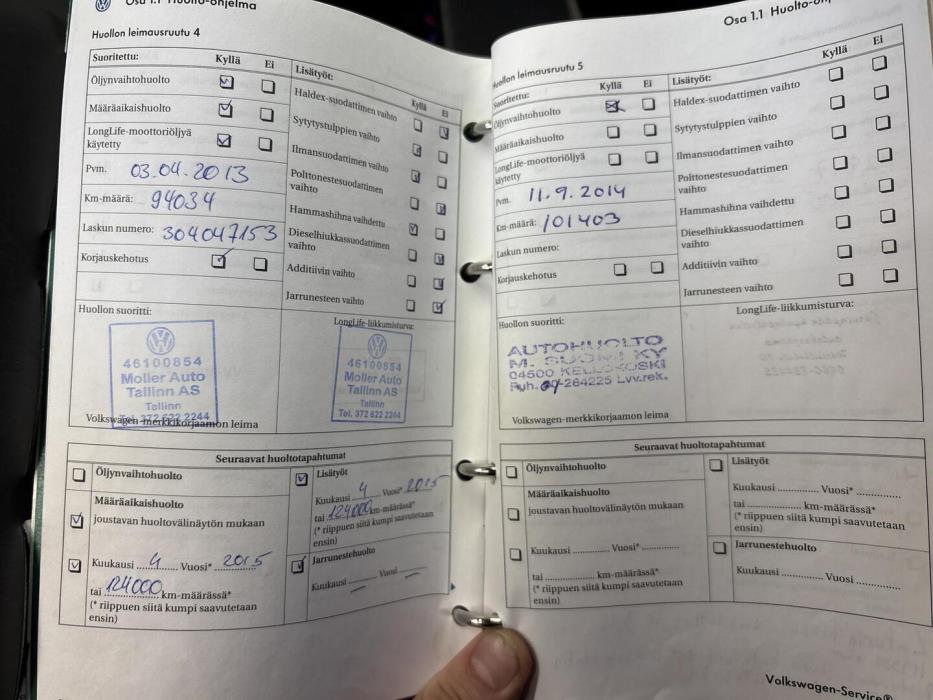 Osa 1.1 Huolto-ohjelma
Huollon leimausruutu 4
Suoritettu: Kyllä Ei
Öljynvaihtohuolto
Määräaikaishuolto
LongLife-moottoriöljyä
käytetty
Pvm. 03.04.2013
Km-määrä: 94034
Laskun numero: 304047153
Korjauskehotus
Lisätyöt:
Kyllä Ei
Haldex-suodattimen vaihto
Sytytystulppien vaihto
Ilmansuodattimen vaihto
Polttonestesuodattimen
vaihto
Hammashihna vaihdettu
Dieselhiukkassuodattimen
vaihto
Additiivin vaihto
Jarrunesteen vaihto
Huollon suoritti:
46100854
Moller Auto
Tallinn AS
Tallinn
Tel. 372 622 2244
Volkswagen-merkkikorjaamon leima
LongLife-liikkumisturva:
46100854
Moller Auto
Tallinn AS
Tallinn
Tel. 372 622 2244
Seuraavat huoltotapahtumat
Öljynvaihtohuolto
Määräaikaishuolto
joustavan huoltovälinäytön mukaan
Kuukausi 4 Vuosi* 2015
tai 124000 km-määrässä*
(* riippuen siitä kumpi saavutetaan
ensin)
Lisätyöt
Kuukausi 4 Vuosi* 2015
tai 124000 km-määrässä*
(* riippuen siitä kumpi saavutetaan
ensin)
Jarrunestehuolto
Kuukausi Vuosi
Osa 1.1 Huolto-
Huollon leimausruutu 5
Suoritettu: Kyllä Ei
Öljynvaihtohuolto
Määräaikaishuolto
LongLife-moottoriöljyä
käytetty
Pvm. 11.9.2014
Km-määrä: 101403
Laskun numero:
Korjauskehotus
Lisätyöt:
Kyllä Ei
Haldex-suodattimen vaihto
Sytytystulppien vaihto
Ilmansuodattimen vaihto
Polttonestesuodattimen
vaihto
Hammashihna vaihdettu
Dieselhiukkassuodattimen
vaihto
Additiivin vaihto
Jarrunesteen vaihto
Huollon suoritti:
AUTOHUOLTO
M. SUOMI KY
04500 KELLOKOSKI
Puh. 09-284225 Lvv.rek.
Volkswagen-merkkikorjaamon leima
LongLife-liikkumisturva:
Seuraavat huoltotapahtumat
Öljynvaihtohuolto
Määräaikaishuolto
joustavan huoltovälinäytön mukaan
Kuukausi Vuosi*
tai km-määrässä*
(* riippuen siitä kumpi saavutetaan
ensin)
Lisätyöt
Kuukausi Vuosi*
tai km-määrässä*
(* riippuen siitä kumpi saavutetaan
ensin)
Jarrunestehuolto
Kuukausi Vuosi
Volkswagen-Service®